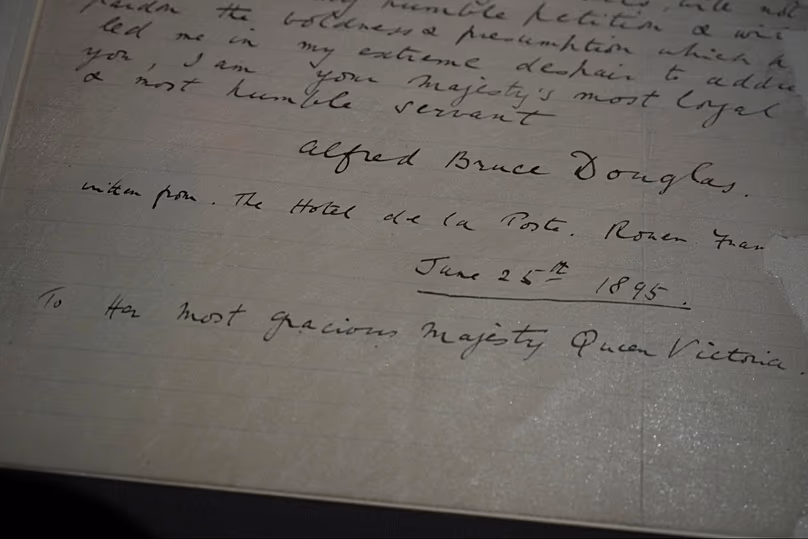 humble petition & will
pardon the boldness & presumption which h
led me in my extreme despair to addre
you, I am your Majesty's most loyal
& most humble servant
Alfred Bruce Douglas.
written from. The Hotel de la Poste. Rouen Fran
June 25th 1895.
To Her most gracious Majesty Queen Victoria.